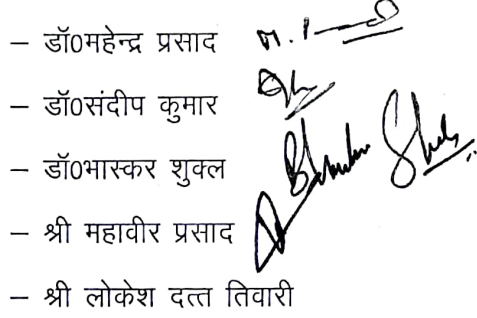 – डॉ0महेन्द्र प्रसाद
– डॉ0संदीप कुमार
– डॉ0भास्कर शुक्ल
– श्री महावीर प्रसाद
– श्री लोकेश दत्त तिवारी